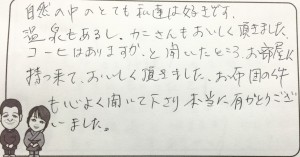 自然の中のとても私達は好きです。
温泉もあるし、カニさんもおいしく頂きました。
コーヒはありますか、と聞いたところ、お部屋に
持って来て、おいしく頂きました、お布団の件
もこころよく聞いて下さり本当に有がとうござ
いました。